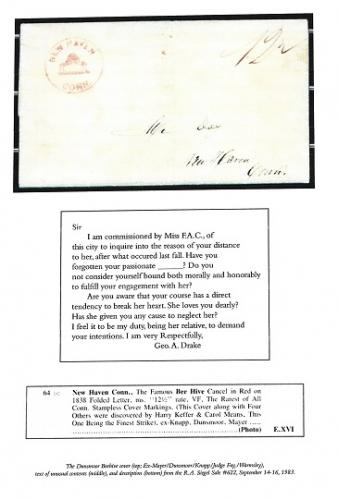 NEW HAVEN
CONN.
New Haven
Conn.
Sir
I am commissioned by Miss F.A.C., of
this city to inquire into the reason of your distance
to her, after what occured last fall. Have you
forgotten your passionate ______? Do you
not consider yourself bound both morally and honorably
to fulfill your engagement with her?
Are you aware that your course has a direct
tendency to break her heart. She loves you dearly?
Has she given you any cause to neglect her?
I feel it to be my duty, being her relative, to demand
your intentions. I am very Respectfully,
Geo. A. Drake
64 New Haven Conn., The Famous Bee Hive Cancel in Red on
1838 Folded Letter, ms. "12½" rate, VF, The Rarest of All
Conn. Stampless Cover Markings. (This Cover along with Four
Others were discovered by Harry Keffer & Carol Means, This
One Being the Finest Strike), ex-Knapp, Dunsmoor, Mayer .....
(Photo) E.XVI
The Dunsmoor Beehive cover (top; Ex-Mayer/Dunsmoor/Knapp/Judge Fay/Warmsley),
text of unusual contents (middle), and description (bottom) from the R.A. Siegel Sale #622, September 14-16, 1983.